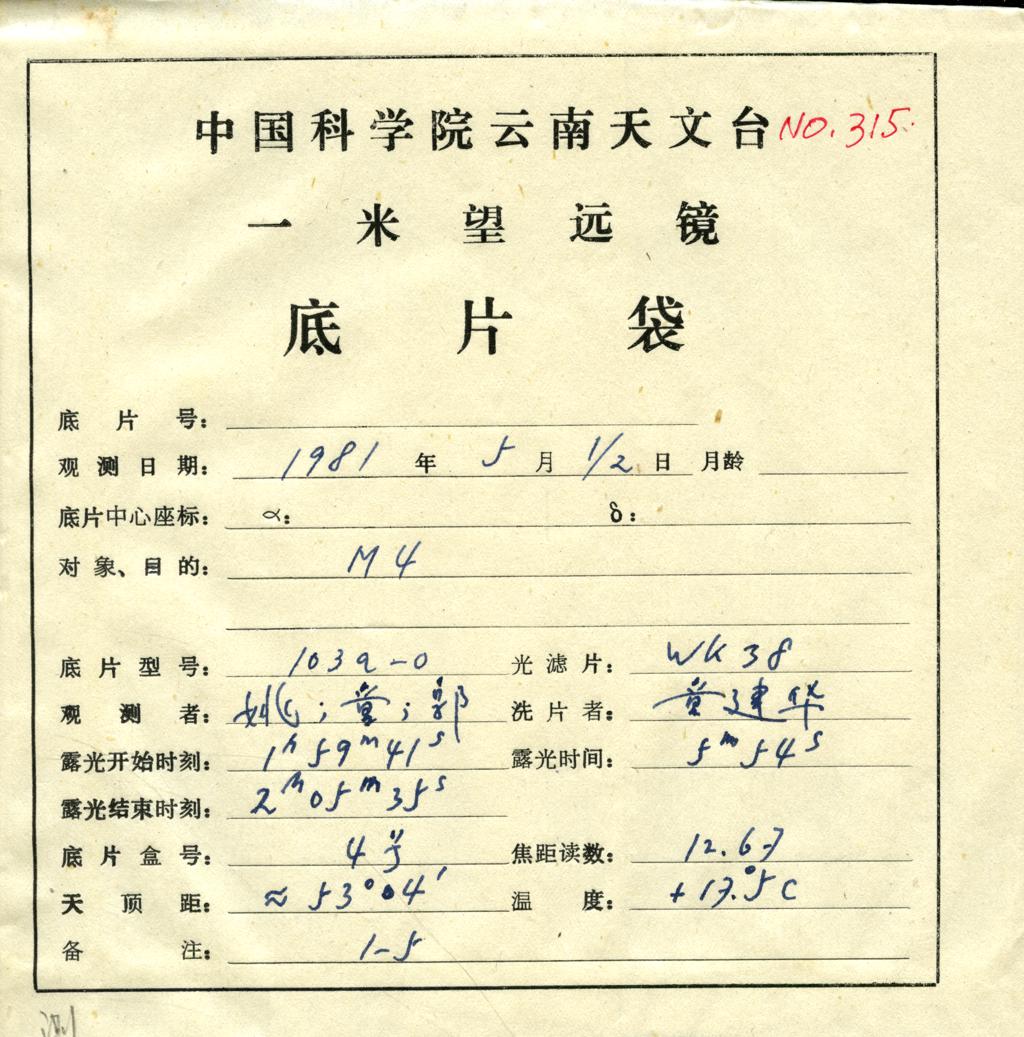 中国科学院云南天文台 NO. 315.
一米望远镜
底片袋
底片号：
观测日期： 1981 年 5 月 1/2 日 月龄
底片中心座标： α： δ：
对象、目的： M4
底片型号： 103a-O 光滤片： WK38
观测者： 姚；董；郭 洗片者： 董建华
露光开始时刻： 1h 59m 41s 露光时间： 5m 54s
露光结束时刻： 2h 05m 35s
底片盒号： 4号 焦距读数： 12.67
天顶距： ≈ 53°04′ 温度： +17.°5C
备注： 1-5
测